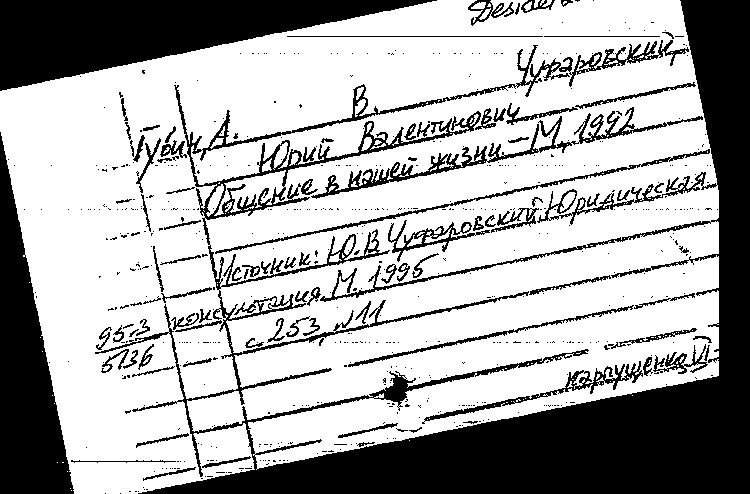 Чуфаровский,
Губин, А. В.
Юрий Валентинович
Общение в нашей жизни.-М, 1992
Источник: Ю.В.Чуфаровский, Юридическая
консультация, М., 1995
с. 253, №11
95.3
5136
Карпущенко VI